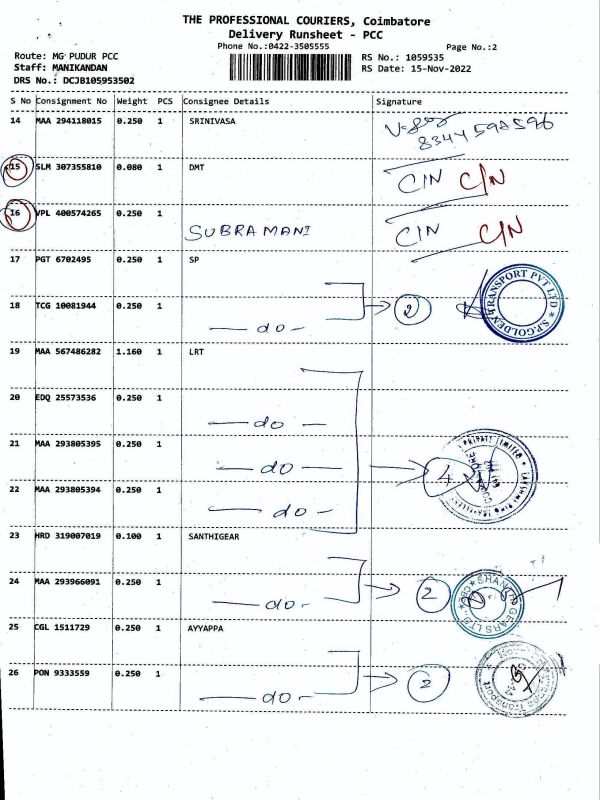 THE PROFESSIONAL COURIERS, Coimbatore
Delivery Runsheet - PCC
Phone No.:0422-3505555
Page No.:2
Route: MG PUDUR PCC
RS No.: 1059535
Staff: MANIKANDAN
RS Date: 15-Nov-2022
DRS No.: DCJB105953502
S No Consignment No Weight PCS Consignee Details Signature
14 MAA 294118015 0.250 1 SRINIVASA
15 SLM 307355810 0.080 1 DMT C/N C/N
16 VPL 400574265 0.250 1 SUBRAMANI C/N C/N
17 PGT 6702495 0.250 1 SP
18 TCG 10081944 0.250 1 — do - 2
S.P.GOLDEN TRANSPORT PVT LTD
19 MAA 567486282 1.160 1 LRT
20 EDQ 25573536 0.250 1 — do —
21 MAA 293805395 0.250 1 — do — 4
22 MAA 293805394 0.250 1 — do -
23 HRD 319007019 0.100 1 SANTHIGEAR
24 MAA 293966091 0.250 1 — do - 2
GEARS LTD.
25 CGL 1511729 0.250 1 AYYAPPA
26 PON 9333559 0.250 1 — do - 2